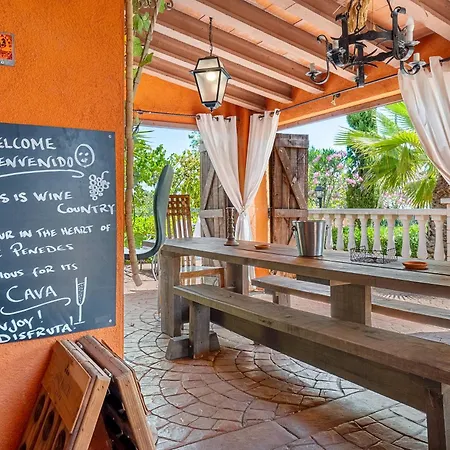 WELCOME
IENVENIDO
S IS WINE
COUNTRY
UR IN THE HEART OF
E PENEDES
OUS FOR ITS
CAVA
NJOY!
DISFRUTA!